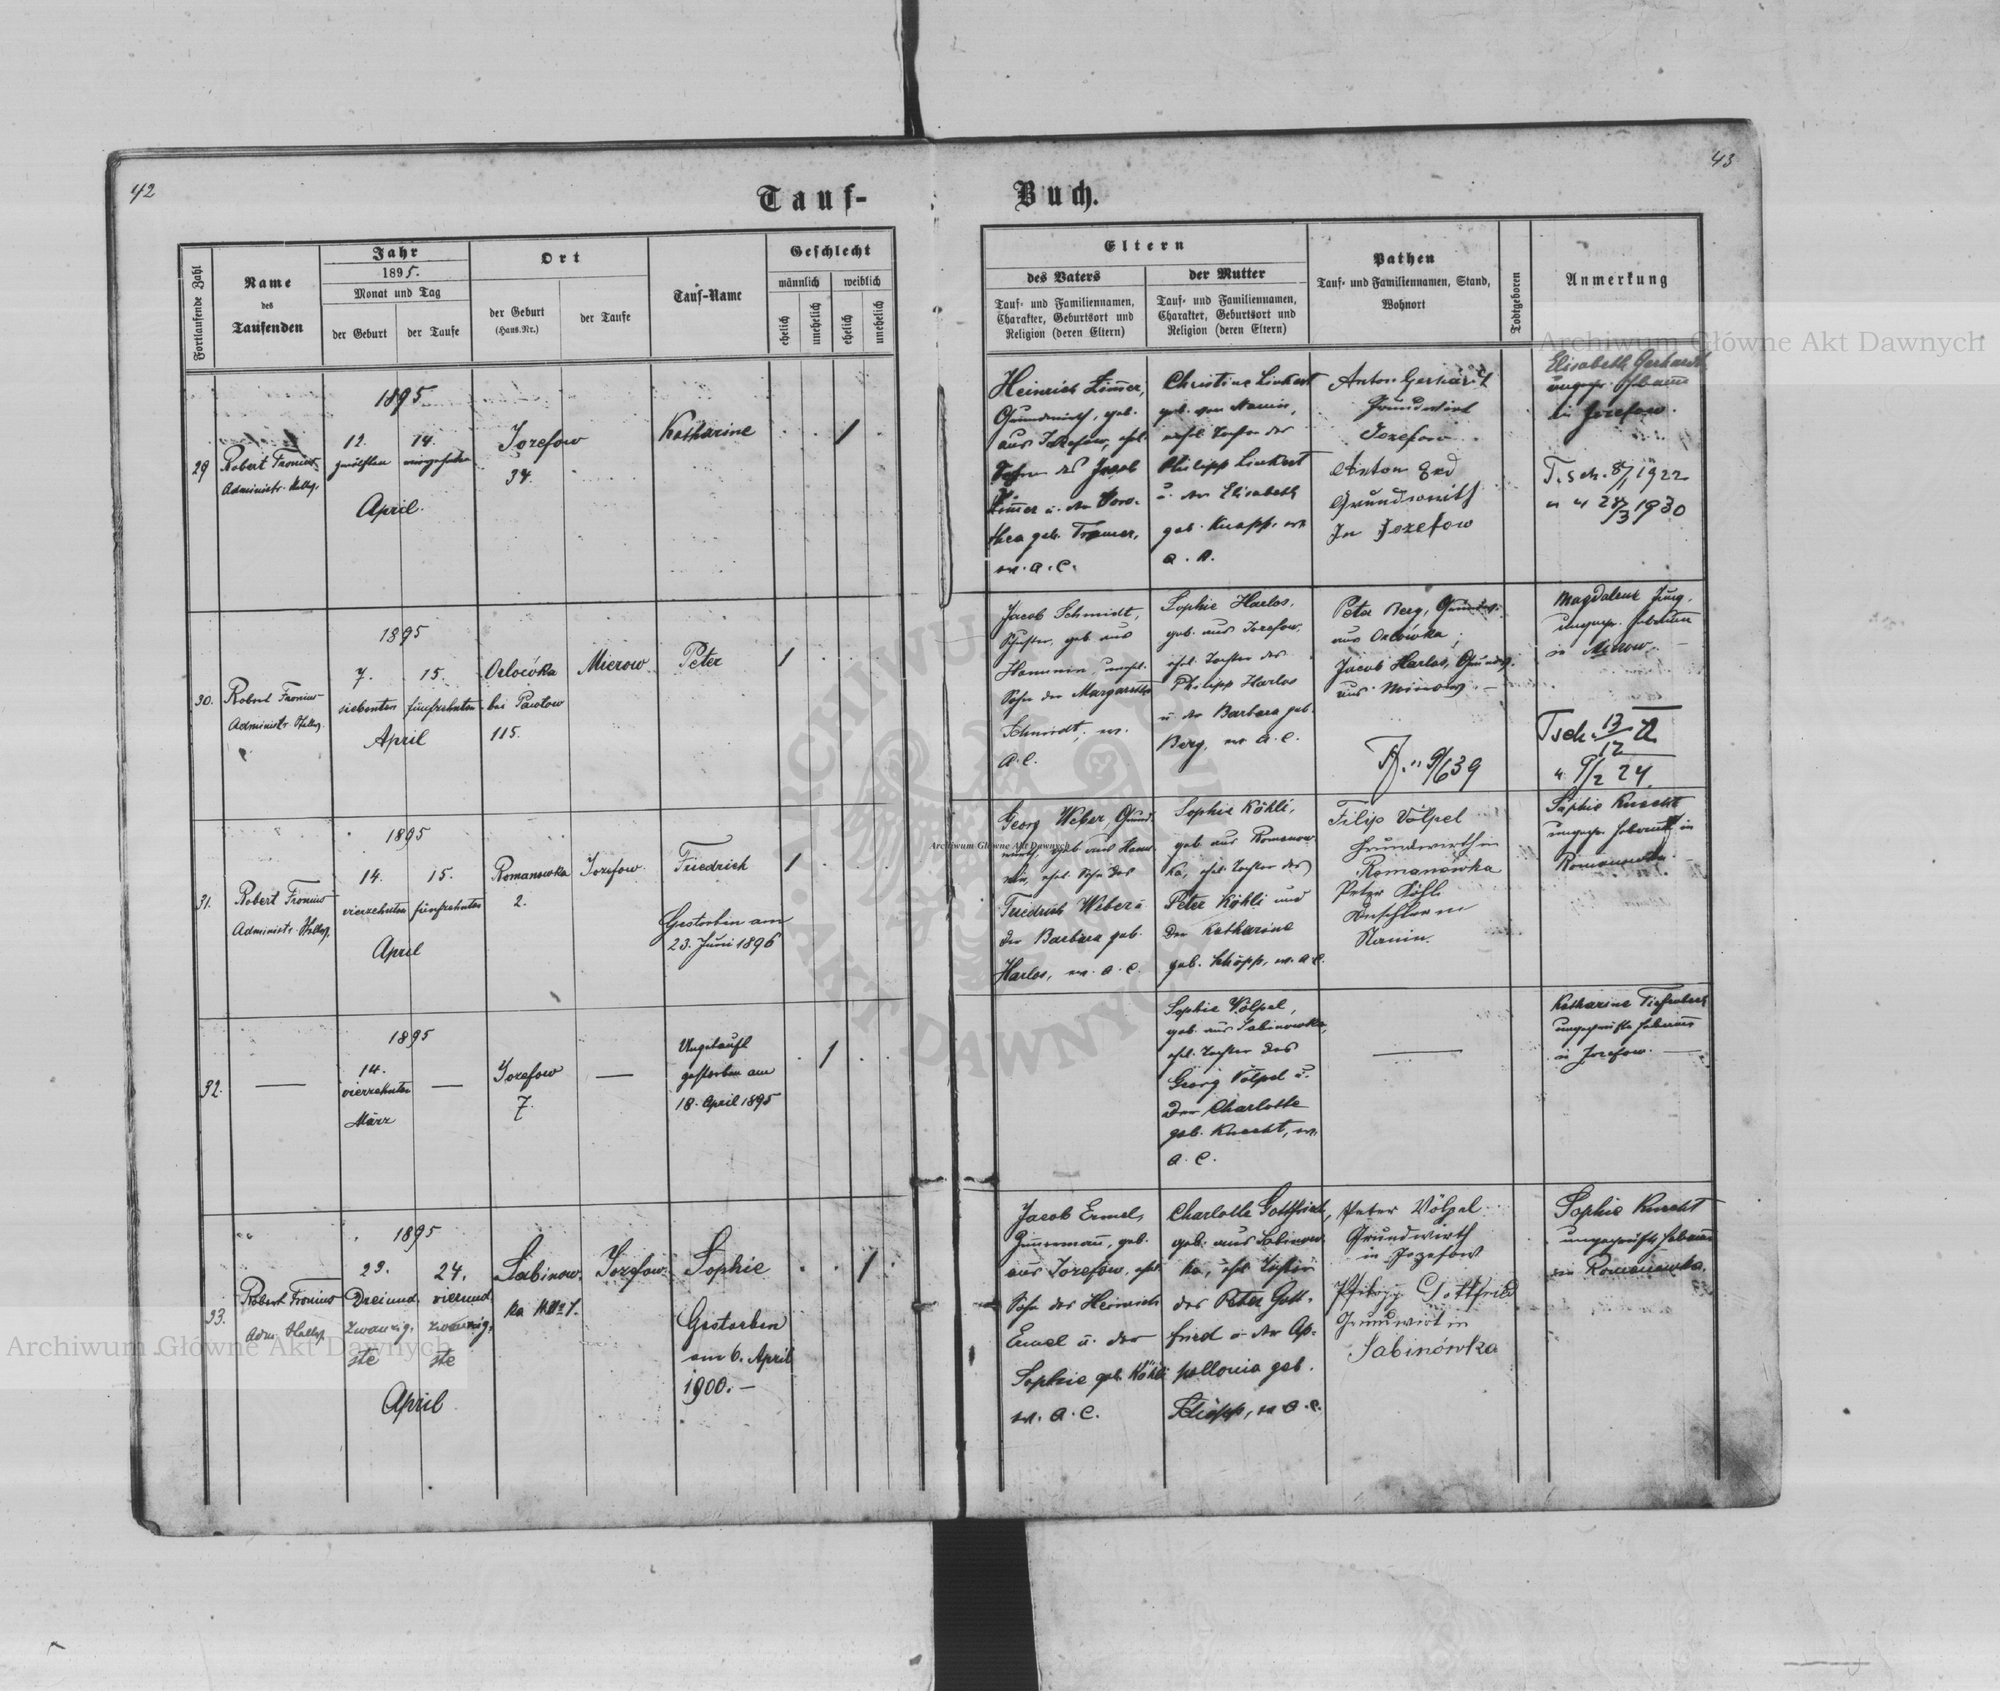 42
43
Tauf-
Buch.
Fortlaufende Zahl
Name
des
Taufenden
Jahr
1895.
Monat und Tag
der Geburt
der Taufe
Ort
der Geburt
(Haus.Nr.)
der Taufe
Tauf-Name
Geschlecht
männlich
weiblich
ehelich
unehelich
ehelich
unehelich
Eltern
des Vaters
Tauf- und Familiennamen,
Charakter, Geburtsort und
Religion (deren Eltern)
der Mutter
Tauf- und Familiennamen,
Charakter, Geburtsort und
Religion (deren Eltern)
Pathen
Tauf- und Familiennamen, Stand,
Wohnort
Todtgeboren
Anmerkung
29
Robert Fronius
Administr.
1895
12. 14.
zwölften vierzehnten
April.
Jozefow
34.
Katharine
Heinrich Zimmer,
Grundwirth, geb.
aus Jozefow, ehel.
Sohn des Jacob
Zimmer u. der Doro-
thea geb. Tramer,
ev. A. C.
Christine Linkert
geb. von Manin,
ehel. Tochter des
Philipp Linkert
u. der Elisabeth
geb. Knapp, ev.
A. C.
Anton Gerhardt
Grundwirt
Jozefow
Anton
Grundwirth
In Jozefow
Elisabeth Gerhardt
ungepr. Hebamme
in Jozefow.
T.sch. 8/1 1922
" " 28/3 1930
30.
Robert Fronius
Administr.
1895
7. 15.
siebenten fünfzehnten
April
Orlowka
bei Pawlow
115.
Mierow
Peter
1
Jacob Schmidt,
geb. aus
unehel.
Sohn der Margarethe
Schmidt, ev.
A. C.
Sophie Harlos,
geb. aus Jozefow,
ehel. Tochter des
Philipp Harlos
u. der Barbara geb.
Berg, ev. A. C.
Peter Berg,
aus Orlowka,
Jacob Harlos,
aus Mierow. —
9/6 39
Magdalena Jung,
ungepr. Hebamme
in Mierow. —
Tsch. 13/12
" 9/2 24.
31.
Robert Fronius
Administr.
1895
14. 15.
vierzehnten fünfzehnten
April
Romanowka
2.
Jozefow
Friedrich
Gestorben am
23. Juni 1896
1
Georg Weber, Grund-
wirth, geb. aus
ehel. Sohn des
Friedrich Weber u
der Barbara geb.
Harlos, ev. A. C.
Sophie Köhli,
geb. aus Romanow-
ka, ehel. Tochter des
Peter Köhli und
der Katharine
geb. Schöpp, ev. A. C.
Filip Völpel
Grundwirth in
Romanówka
Peter Köhli
Manin.
Sophie Knecht
ungepr. Hebamme in
Romanowka.
32.
1895
14.
vierzehnten
März
Jozefow
7.
Ungetauft
gestorben am
18. April 1895
1
Sophie Völpel,
geb. aus Sabinowka,
ehel. Tochter des
Georg Völpel u.
der Charlotte
geb. Knecht, ev.
A. C.
Katharine Tiefenbach
ungeprüfte Hebamme
in Jozefow. —
33.
Robert Fronius
Adm.
1895
23. 24.
Dreiund vierund
zwanzig- zwanzig-
ste ste
April
Sabinow-
ka No 7.
Jozefow
Sophie
Gestorben
am 6. April
1900. —
1
Jacob Ermel,
Zimmermann, geb.
aus Jozefow, ehel
Sohn des Heinrich
Ermel u. der
Sophie geb. Köhli
ev. A. C.
Charlotte Gottfried,
geb. aus Sabinow-
ka, ehel Tochter
des Peter Gott-
fried u. der Ap-
pollonia geb.
Schöpp, ev A. C.
Peter Völpel
Grundwirth
in Jozefow
Philipp Gottfried
Grundwirt in
Sabinówka
Sophie Knecht
ungeprüfte Hebamme
in Romanowka.
Archiwum Główne Akt Dawnych
Archiwum Główne Akt Dawnych
Archiwum Główne Akt Dawnych